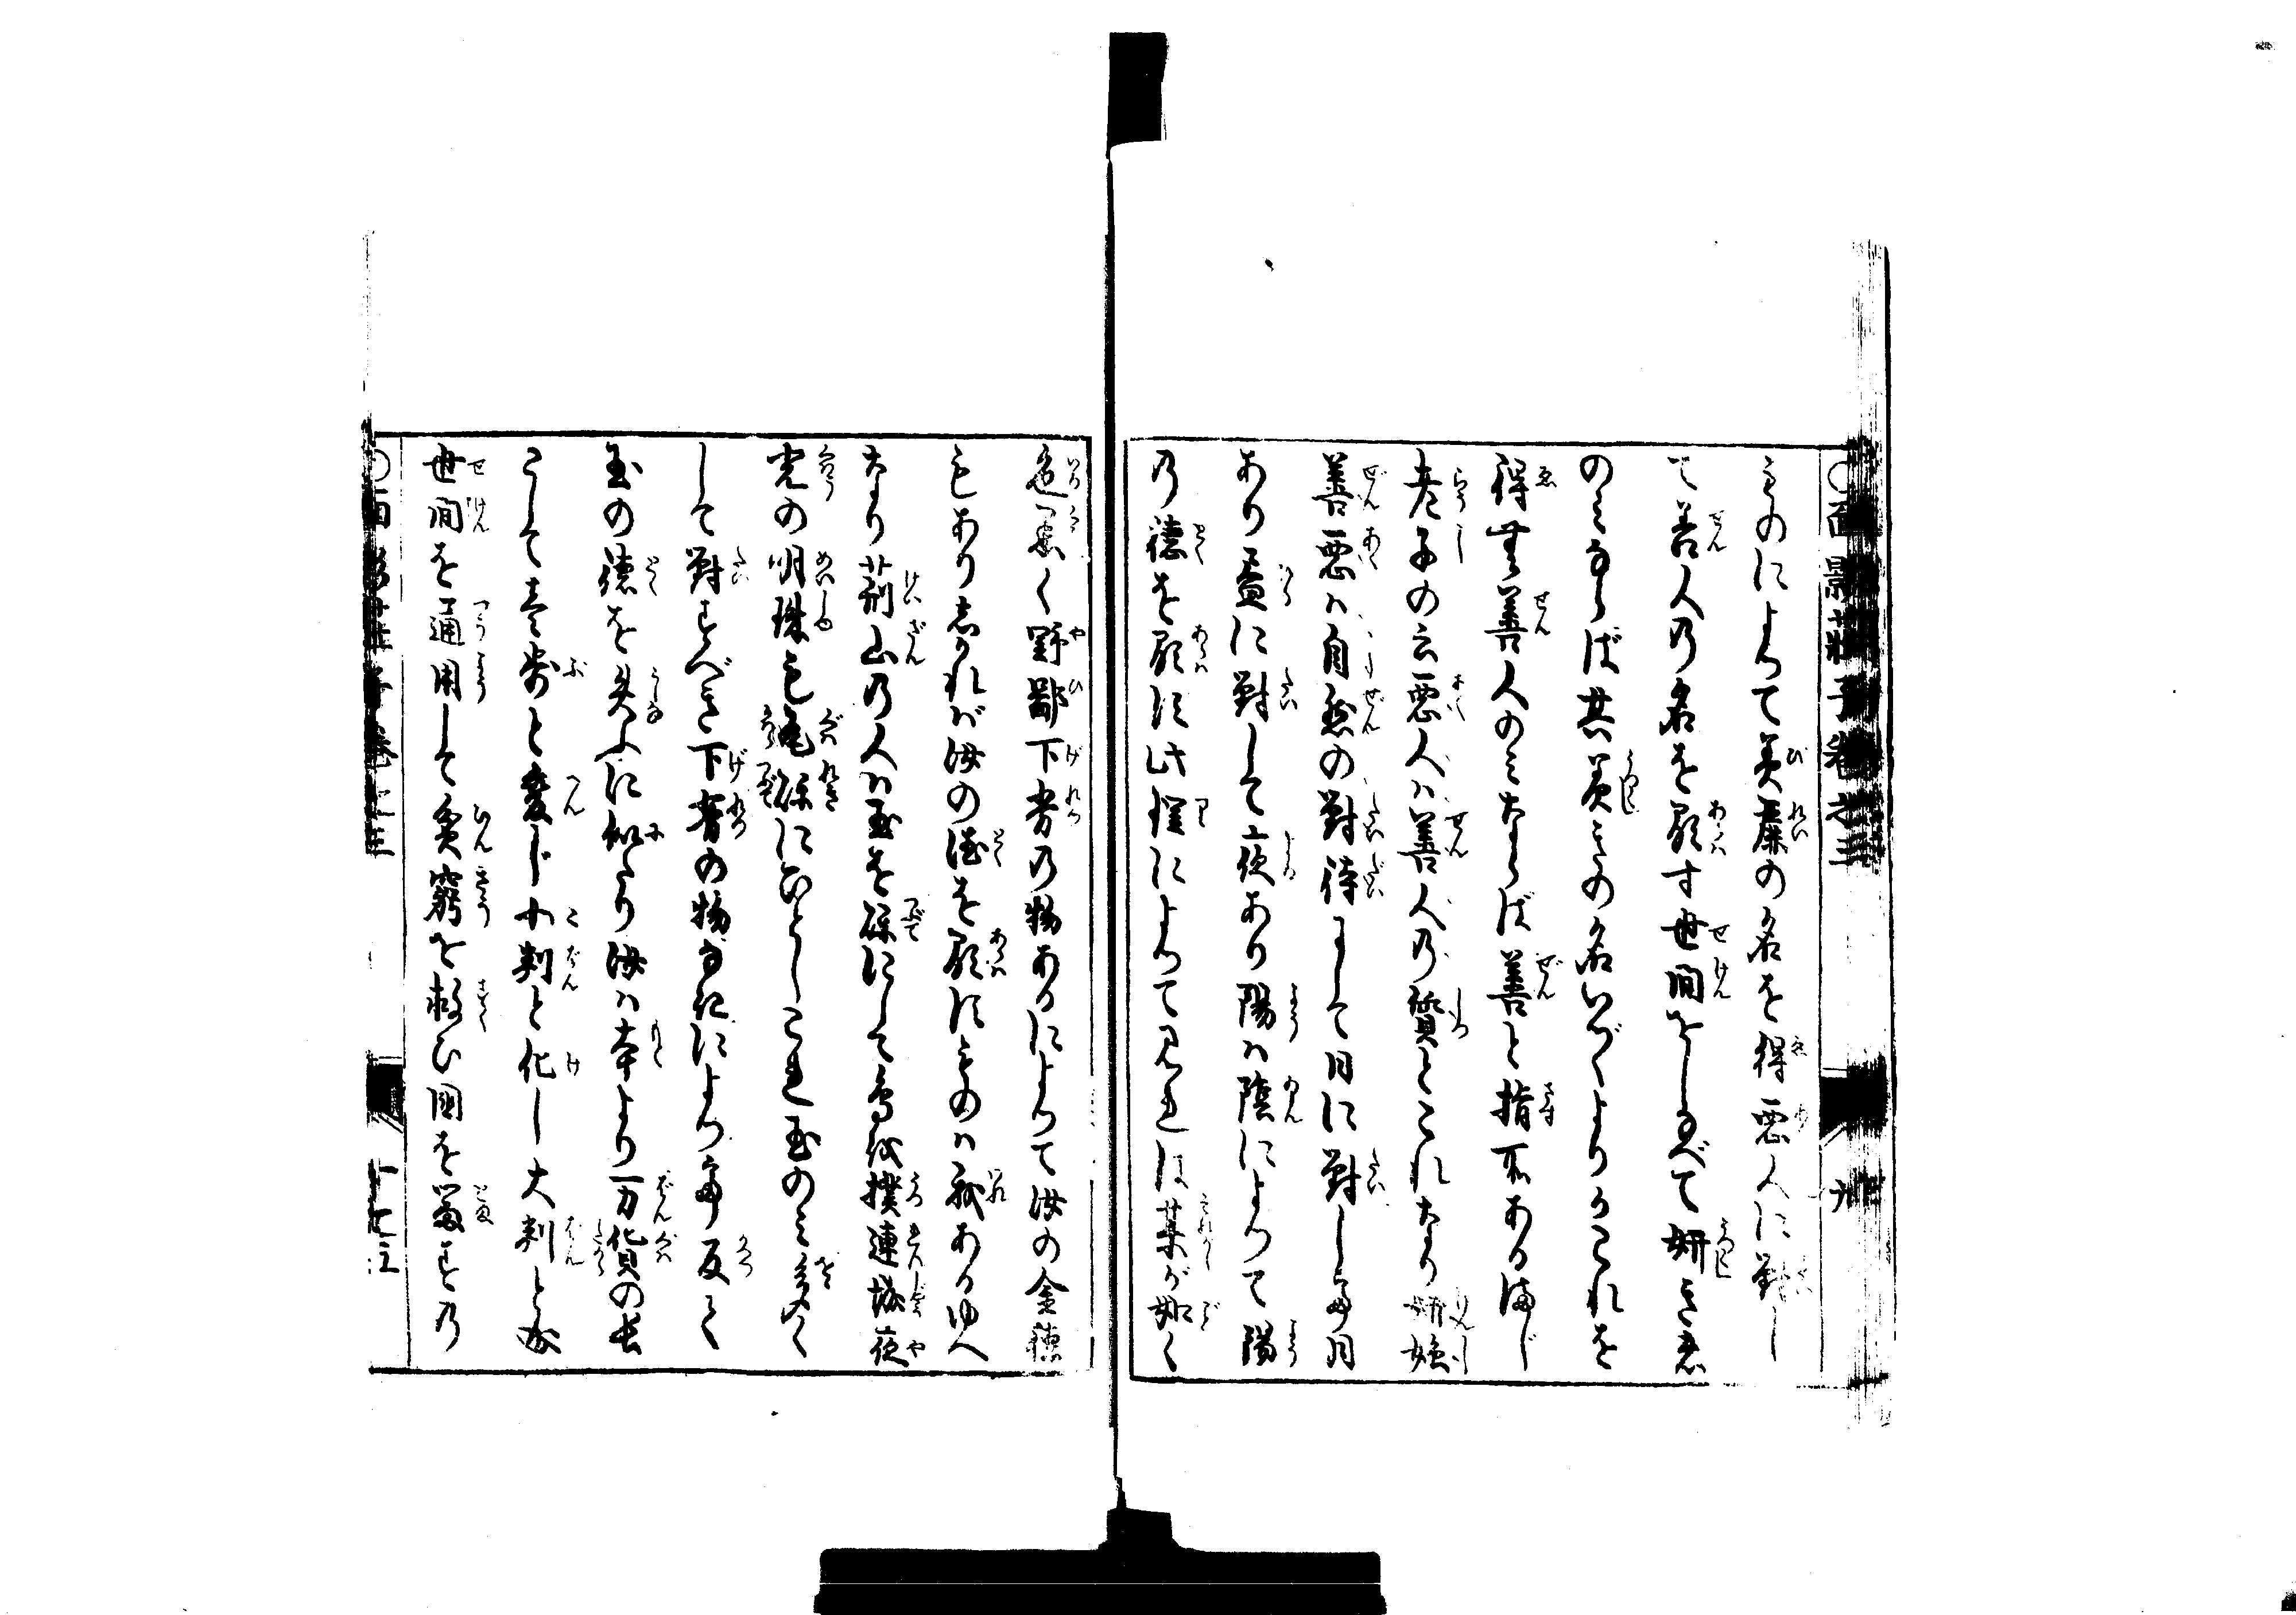 ○面影荘子巻之三 九
ものによつて美麗の名を得悪人に對し
て善人乃名を顕す世間をしなべて妍きもの
のみならば其美きの名いづくよりかこれを
得無善人のみならば善と指所ある海じ
老子の云悪人ハ善人乃質とこれなり妍媸
善悪ハ自然の對待にして日に對し
あり晝に對して夜あり陽ハ陰によつて陽
乃徳を顕に此理によつて見れば某が如く
色黒く野鄙下劣乃物あるによつて汝の金徳
もあり志かれば汝の徳を顕にものハ我あるゆへ
なり荊山乃人ハ玉を礫にして鳥を撲連城夜
光の明珠も瓦礫にひとしこれ玉のみ多く
して對すべき下劣の物なきによつ反て
玉の徳を失ふに似たり汝ハ本より万貨の長
として壱歩と変じ小判と化し大判と成
世間を通用して貧窮を救ひ国を富すの
○面影荘子巻之三